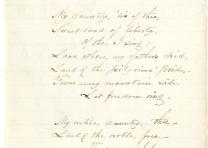 My country, 'tis of thee,
Sweet land of liberty,
Of thee I sing:
Land where my fathers died,
Land of the pilgrims' pride,
From every mountain side
Let freedom ring.
My native country, thee,
Land of the noble, free,